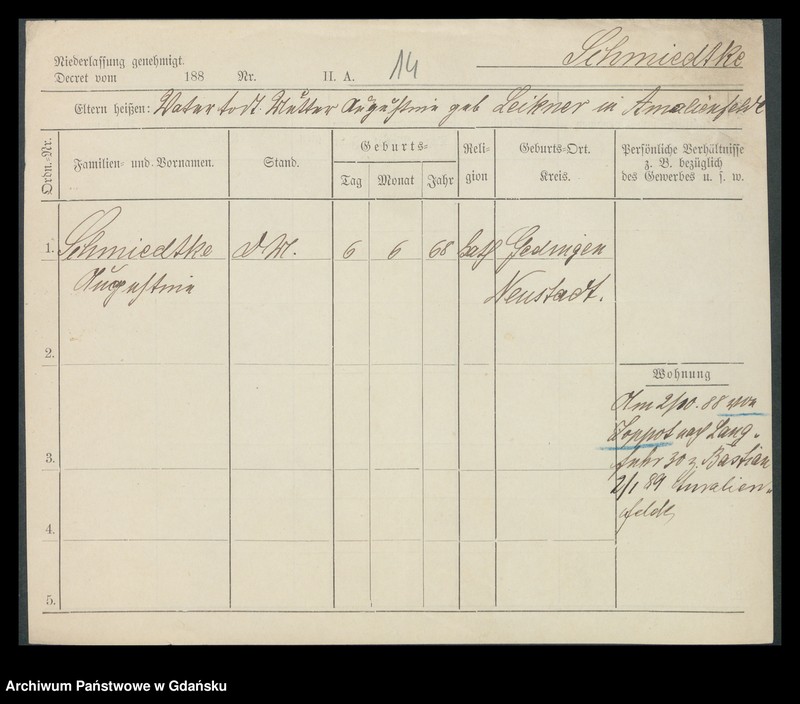 Schmiedtke
Niederlassung genehmigt.
Decret vom 188 Nr. II. A. 14
Eltern heißen: Vater todt. Mutter Augustine geb Leikner in Amalienfelde
Ordn.-Nr.
Familien- und Vornamen.
Stand.
Geburts-
Tag
Monat
Jahr
Reli-
gion
Geburts-Ort.
Kreis.
Persönliche Verhältnisse
z. B. bezüglich
des Gewerbes u. s. w.
1. Schmiedtke D M. 6 6 68 Kath Gedingen
Augustine Neustadt.
2.
Wohnung
Am 2/10. 88 von
Zoppot nach Lang-
3.
fuhr 30 z. Bastian
2/1 89 Amalien-
felde
4.
5.
Archiwum Państwowe w Gdańsku